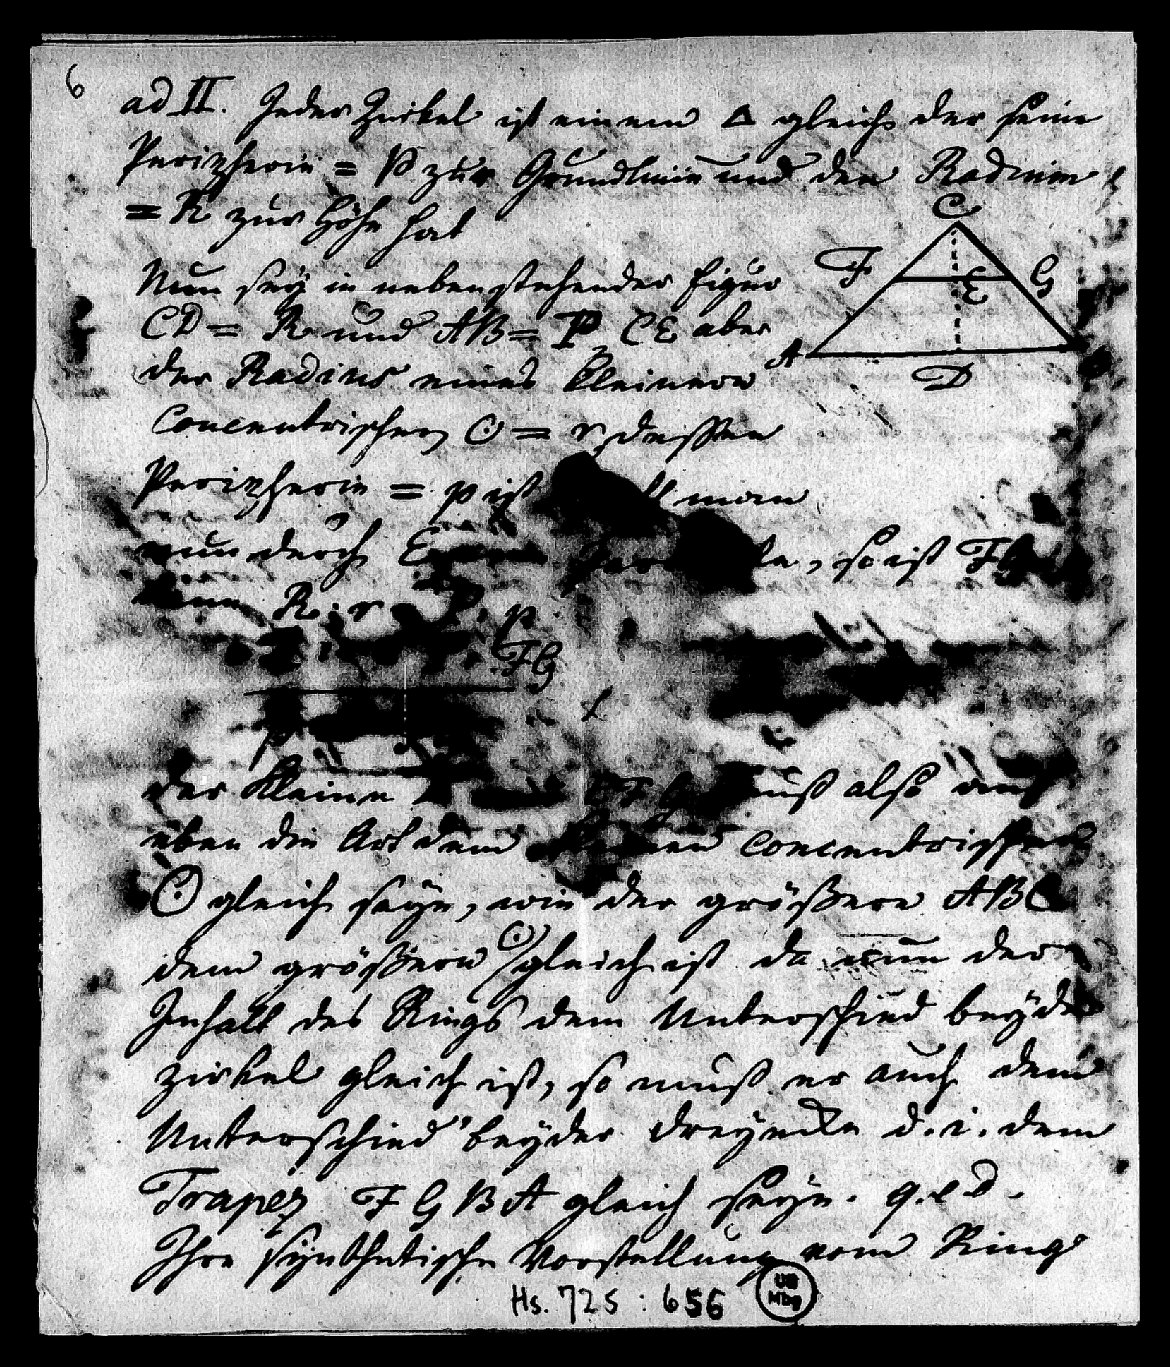 6
ad II. Jeder Zirkel ist einem Δ gleich der seine
Peripherie = P zur Grundlinie und den Radium
= R zur Höhe hat
C
Nun sey in nebenstehender Figur
F E G
CD = R und AB = P, CE aber
A D
der Radius eines kleinern
concentrischen ⊙ = r, dessen
Peripherie = p ist man
nun durch E, so ist FG
denn R : r = P : p
FG
der kleine CFG muß also auf
eben die Art dem concentrischen
⊙ gleich seyn, wie der größere ABC
dem größern ⊙ gleich ist da nun der
Inhalt des Rings dem Unterschied beyder
Zirkel gleich ist, so muß er auch dem
Unterschied beyder Dreyecke d. i. dem
Trapez FGBA gleich seyn. q. e. d.
Ihre synthetische Vorstellung vom Ring
Hs. 725 : 656
UB
Mbg